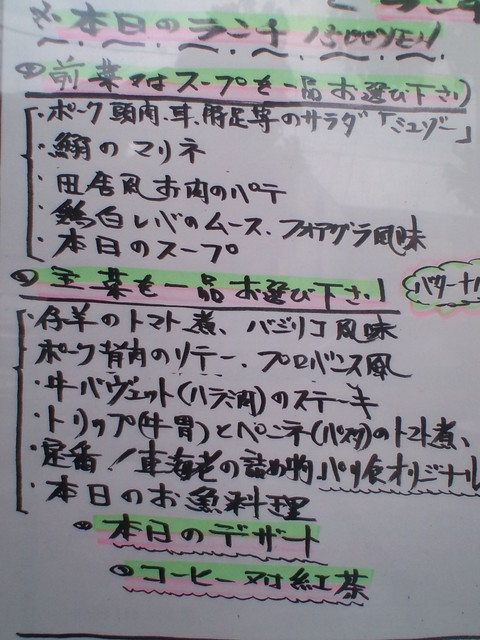 本日のランチ 1500円
前菜又はスープを一品お選び下さい
・ポーク頭肉、耳、豚足等のサラダ「ミュゾー」
・鰯のマリネ
・田舎風お肉のパテ
・鶏白レバのムース、フォアグラ風味
・本日のスープ
主菜も一品お選び下さい
・仔羊のトマト煮、バジリコ風味
・ポーク背肉のソテー、プロバンス風
・牛バヴェット(ハラミ肉)のステーキ
・トリップ(牛胃)とペンネ(パスタ)のトマト煮、
・定番!車海老の詰め物パリ食オリジナル
・本日のお魚料理
本日のデザート
コーヒー又は紅茶